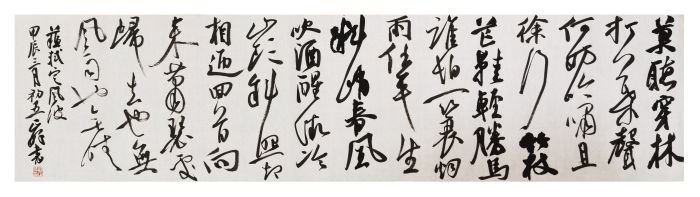 莫聽穿林
打葉聲
何妨吟嘯且
徐行竹杖
芒鞋輕勝馬
誰怕一蓑烟
雨任平生
料峭春風
吹酒醒微冷
山頭斜照却
相迎回首向
来蕭瑟處
歸去也無
風雨也無晴
蘇軾定風波
甲辰三月初五
書